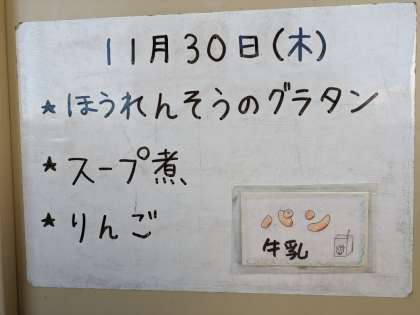 11月30日(木)
★ほうれんそうのグラタン
★スープ煮
★りんご
パン
牛乳